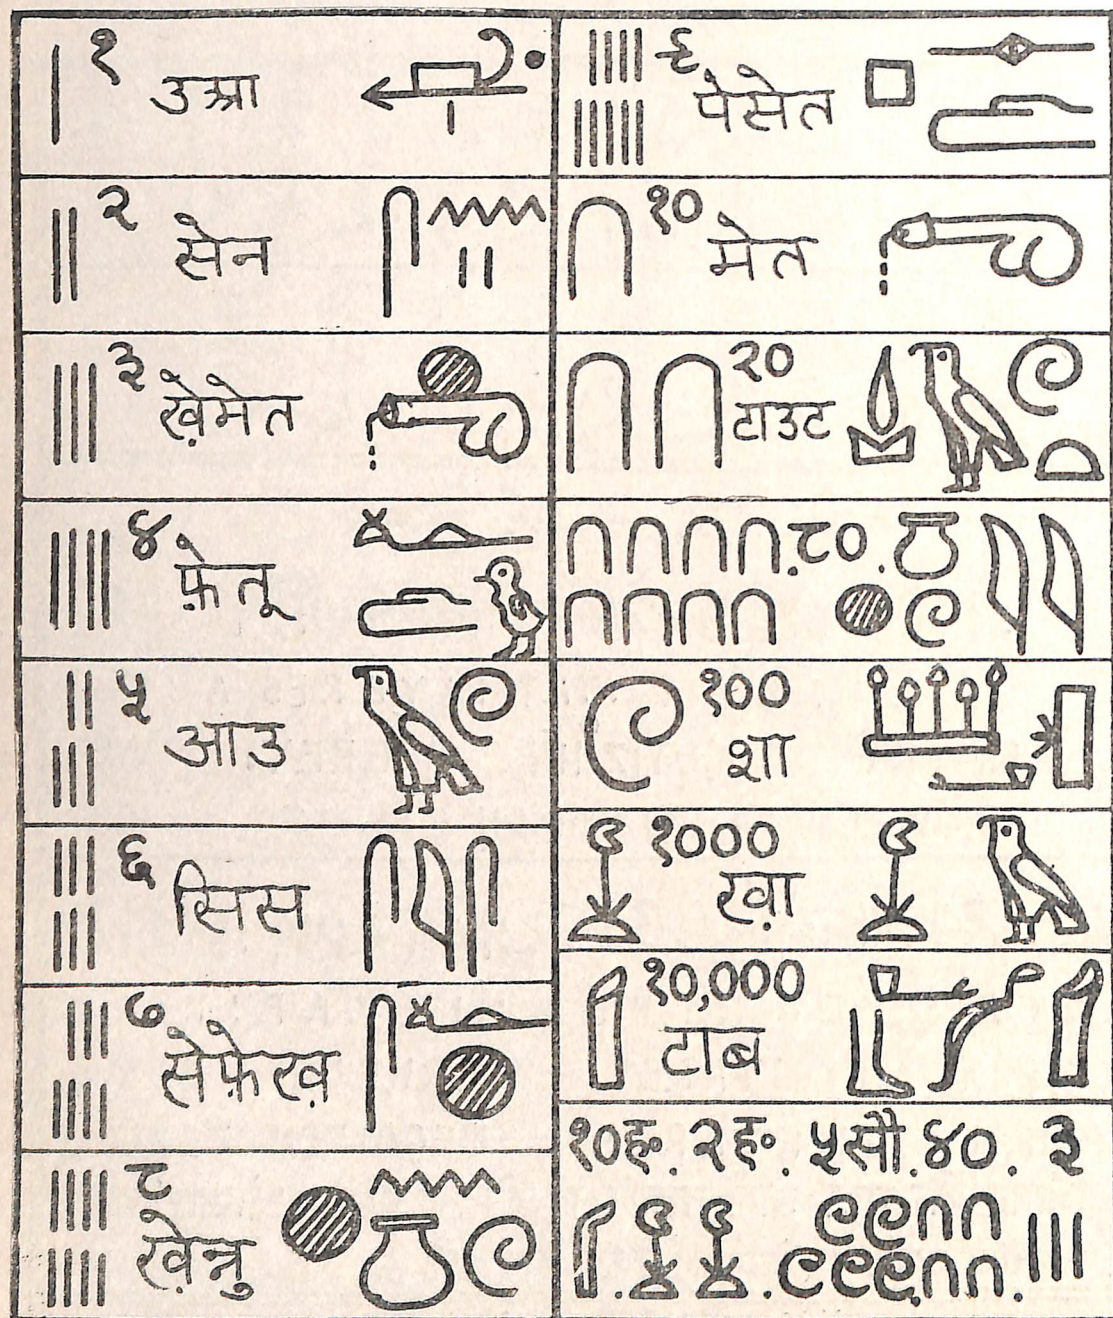 १
उआ
२
सेन
३
ख़ेमेत
४
फ़ेतू
५
आउ
६
सिस
७
सेफ़ेख़
८
ख़ेन्नु
९
पेसेत
१०
मेत
२०
टाउट
८०
१००
शा
१०००
ख़ा
१०,०००
टाब
१०ह. २ह. ५सौ. ४०. ३